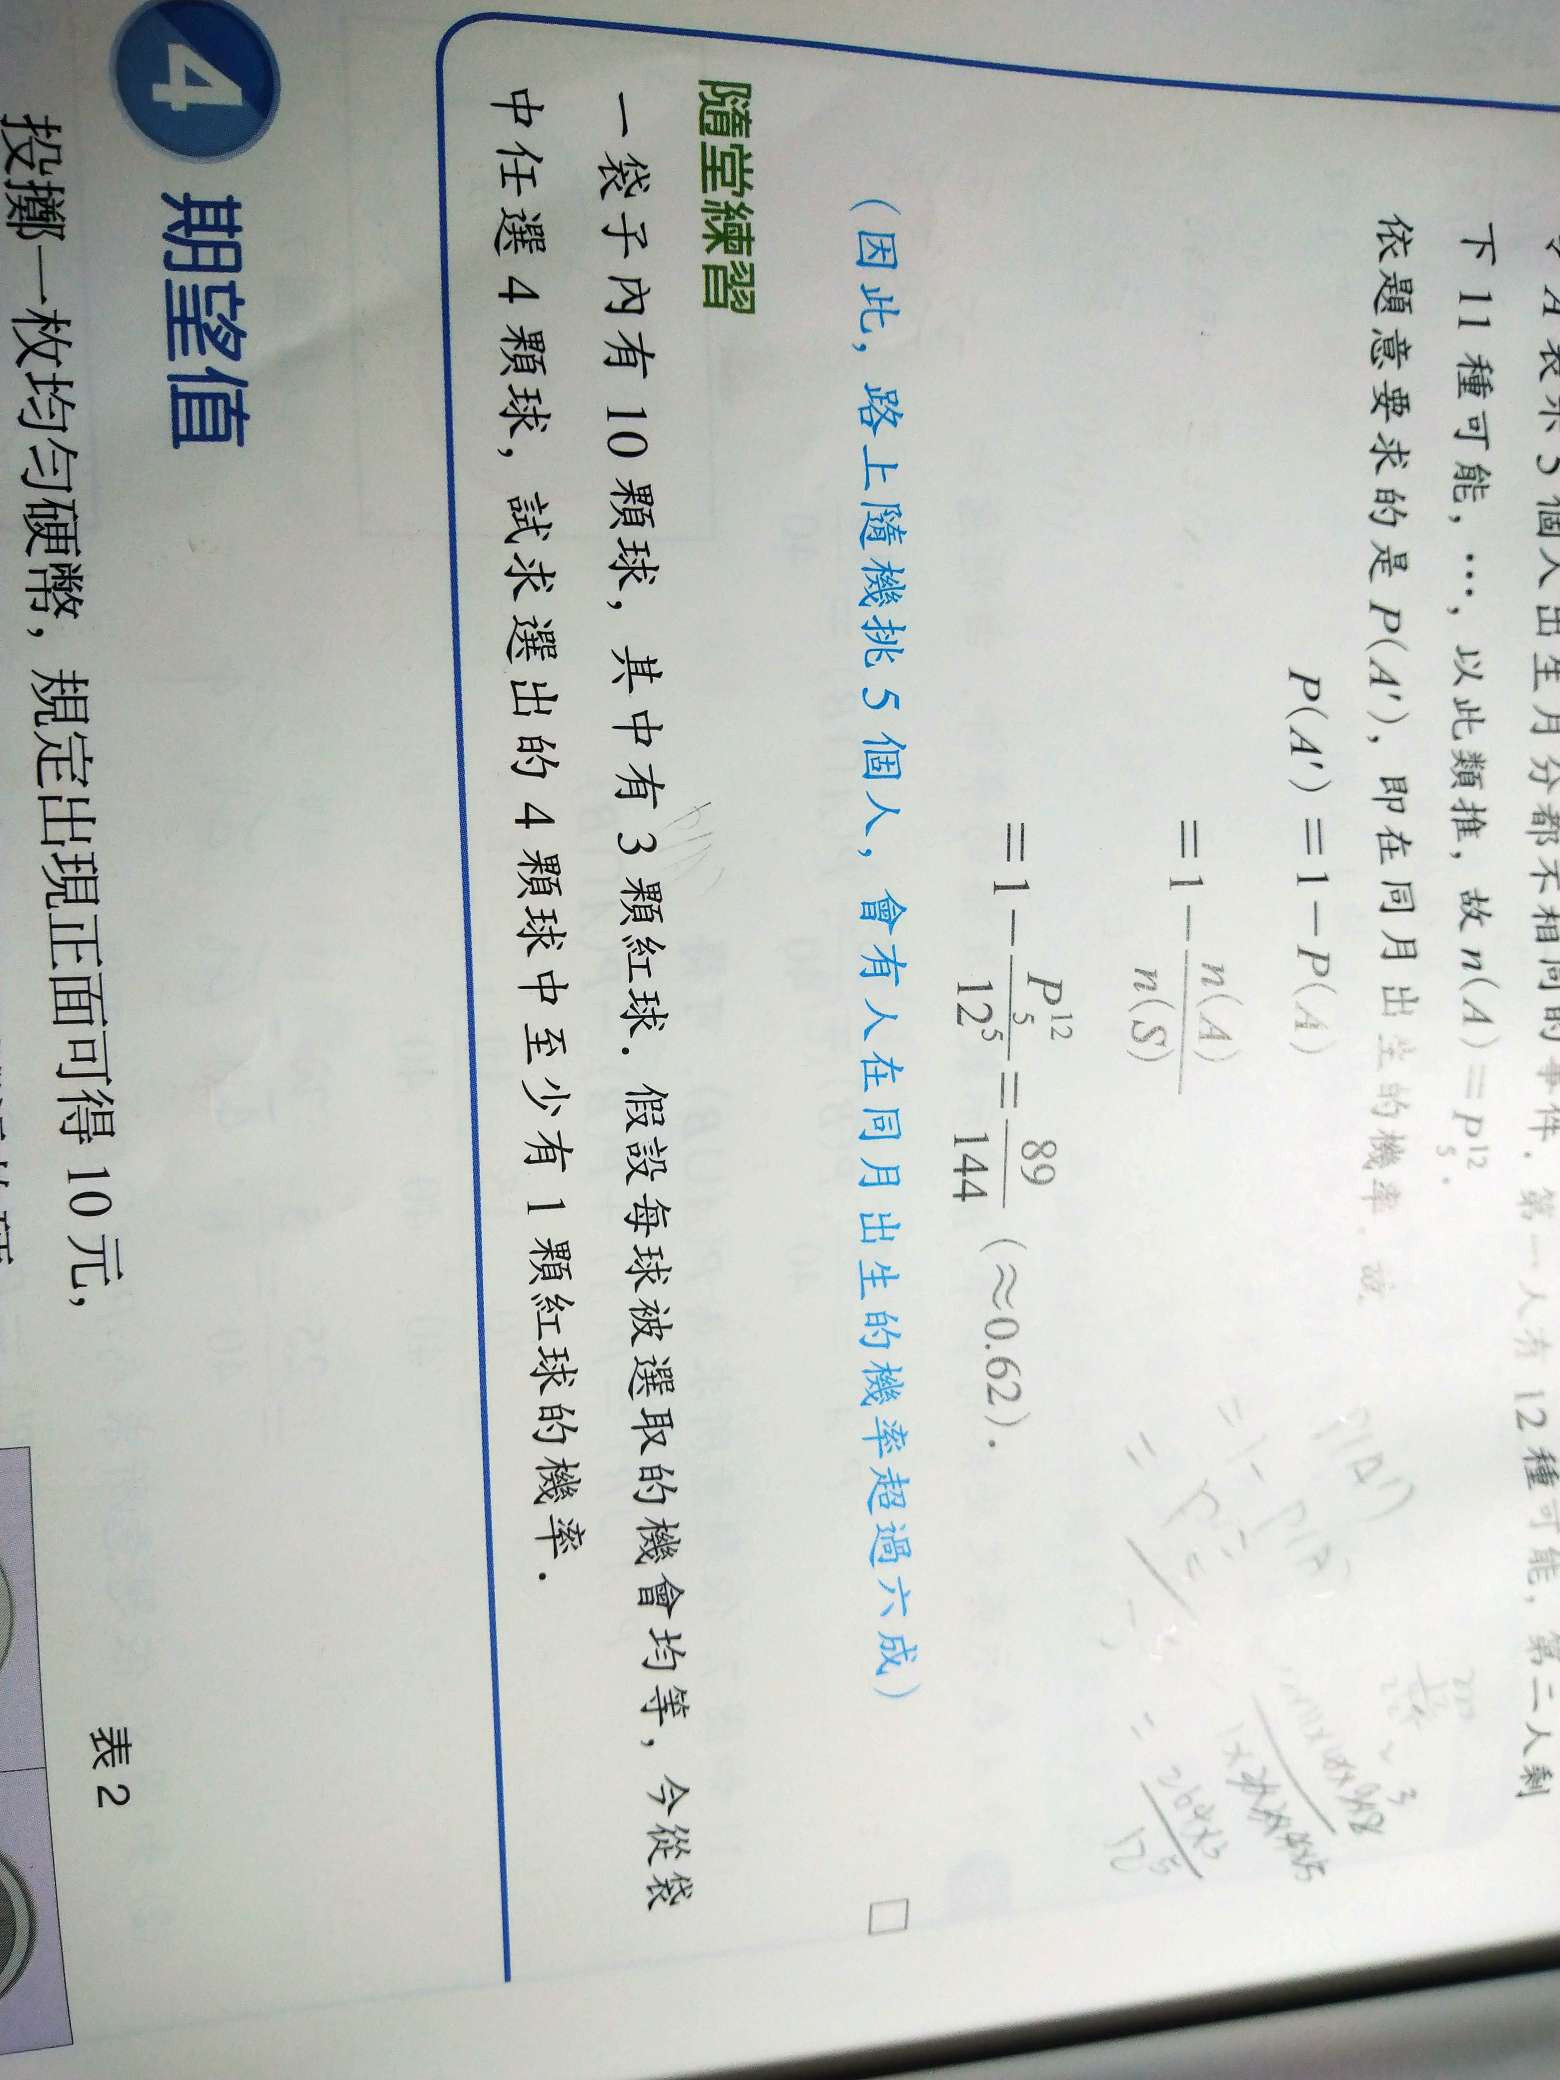 A 表示 5 個人出生月分都不相同的事件．第一人有 12 種可能，第二人剩
下 11 種可能，…，以此類推，故 n(A)＝P¹²₅．
依題意要求的是 P(A′)，即在同月出生的機率．故
P(A′)＝1－P(A)
＝1－n(A)/n(S)
＝1－P¹²₅/12⁵＝89/144 (≈0.62)．
（因此，路上隨機挑 5 個人，會有人在同月出生的機率超過六成）
隨堂練習
一袋子內有 10 顆球，其中有 3 顆紅球．假設每球被選取的機會均等，今從袋
中任選 4 顆球，試求選出的 4 顆球中至少有 1 顆紅球的機率．
4 期望值
投擲一枚均勻硬幣，規定出現正面可得 10 元，
表 2
P(A′)